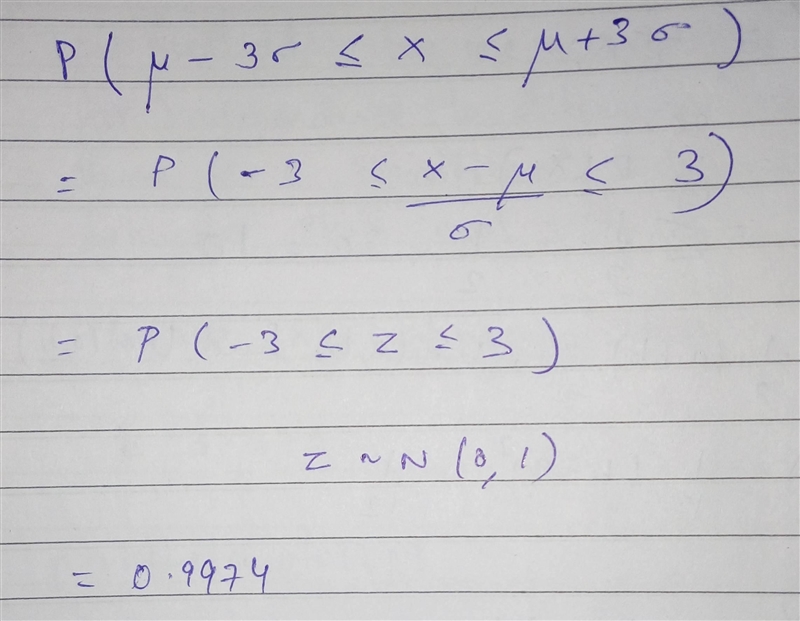 P ( μ - 3σ ≤ x ≤ μ + 3σ )
= P ( -3 ≤ (x - μ)/σ ≤ 3 )
= P ( -3 ≤ z ≤ 3 )
z ~ N (0, 1)
= 0.9974